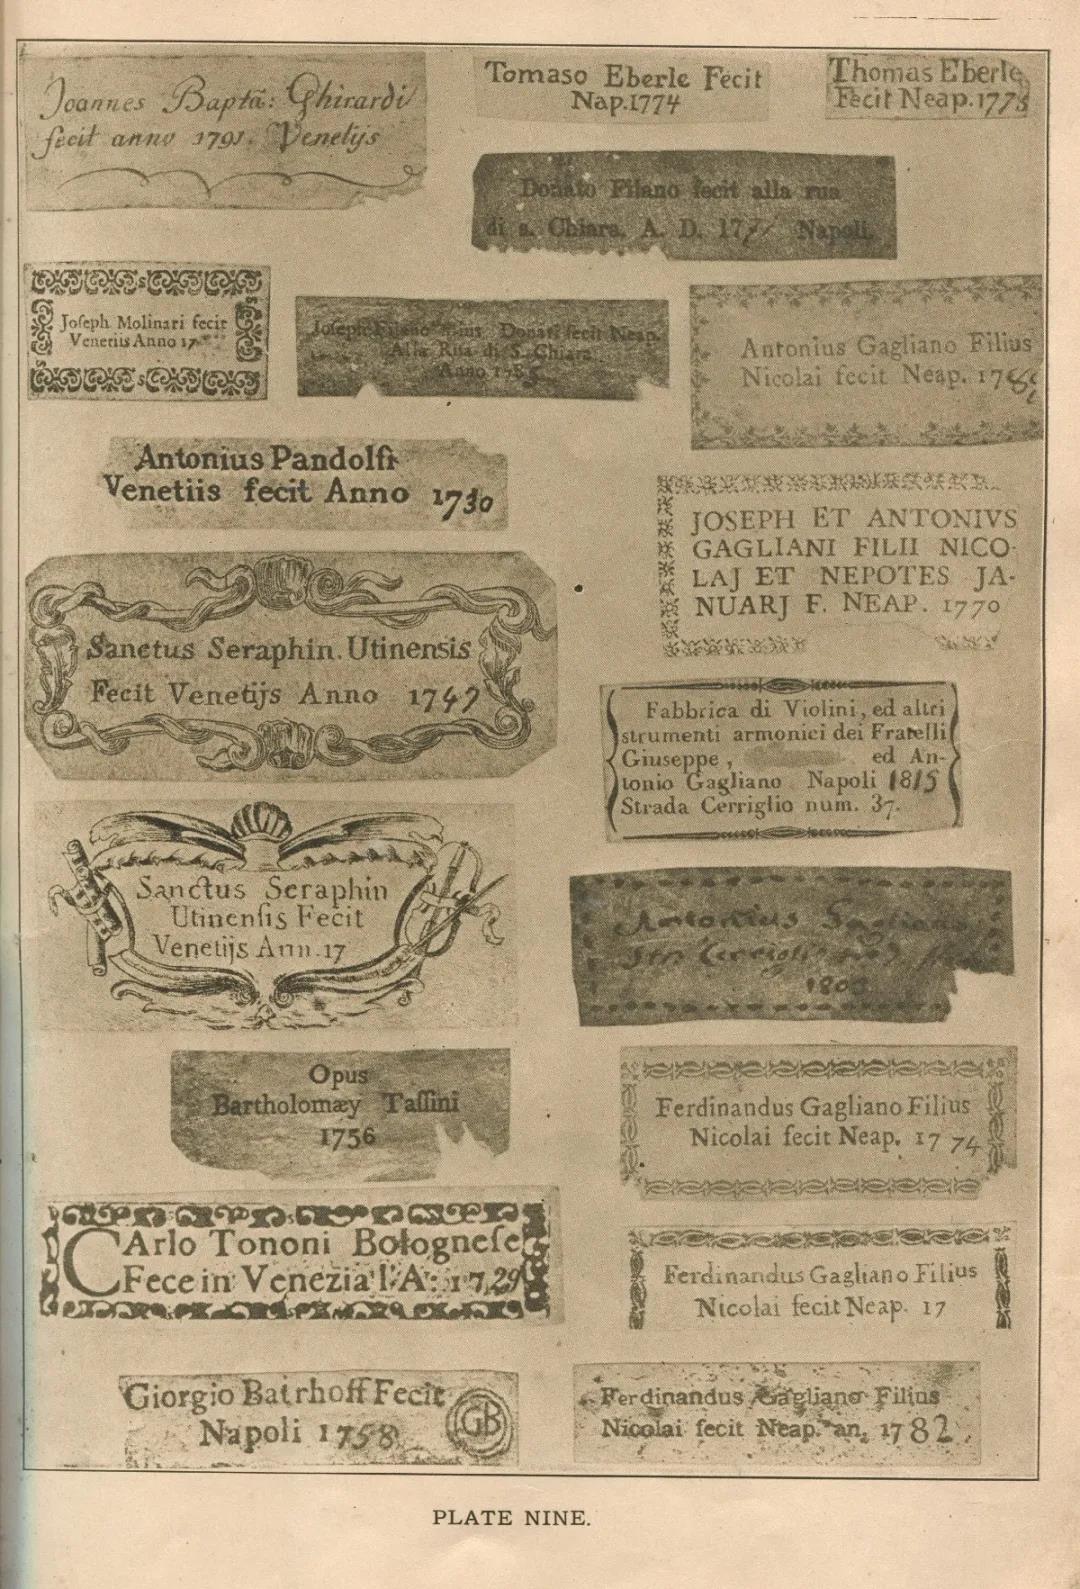 Joannes Baptã: Ghirardi
fecit anno 1791. Venetijs
Tomaso Eberle Fecit
Nap.1774
Thomas Eberle
Fecit Neap.1773
Donato Filano fecit alla rua
di s. Chiara. A. D. 177 Napoli.
Joſeph Molinari fecit
Venetiis Anno 17
Joseph Filano filius Donati fecit Neap.
Alla Rua di S. Chiara
Anno 178
Antonius Gagliano Filius
Nicolai fecit Neap. 178
Antonius Pandolfi
Venetiis fecit Anno 1730
JOSEPH ET ANTONIVS
GAGLIANI FILII NICO-
LAJ ET NEPOTES JA-
NUARJ F. NEAP. 1770
Sanctus Seraphin. Utinensis
Fecit Venetijs Anno 1747
Fabbrica di Violini, ed altri
strumenti armonici dei Fratelli
Giuseppe, ed An-
tonio Gagliano Napoli 1815
Strada Cerriglio num. 37.
Sanctus Seraphin
Utinenſis Fecit
Venetijs Ann.17
Antonius Gagliano
Str Cerriglio
180
Opus
Bartholomæy Taſſini
1756
Ferdinandus Gagliano Filius
Nicolai fecit Neap. 17 74
CArlo Tononi Bologneſe
Fece in Venezia l'A: 1729
Ferdinandus Gagliano Filius
Nicolai fecit Neap. 17
Giorgio Bairhoff Fecit
Napoli 1758 GB
Ferdinandus Gagliano Filius
Nicolai fecit Neap. an. 1782
PLATE NINE.